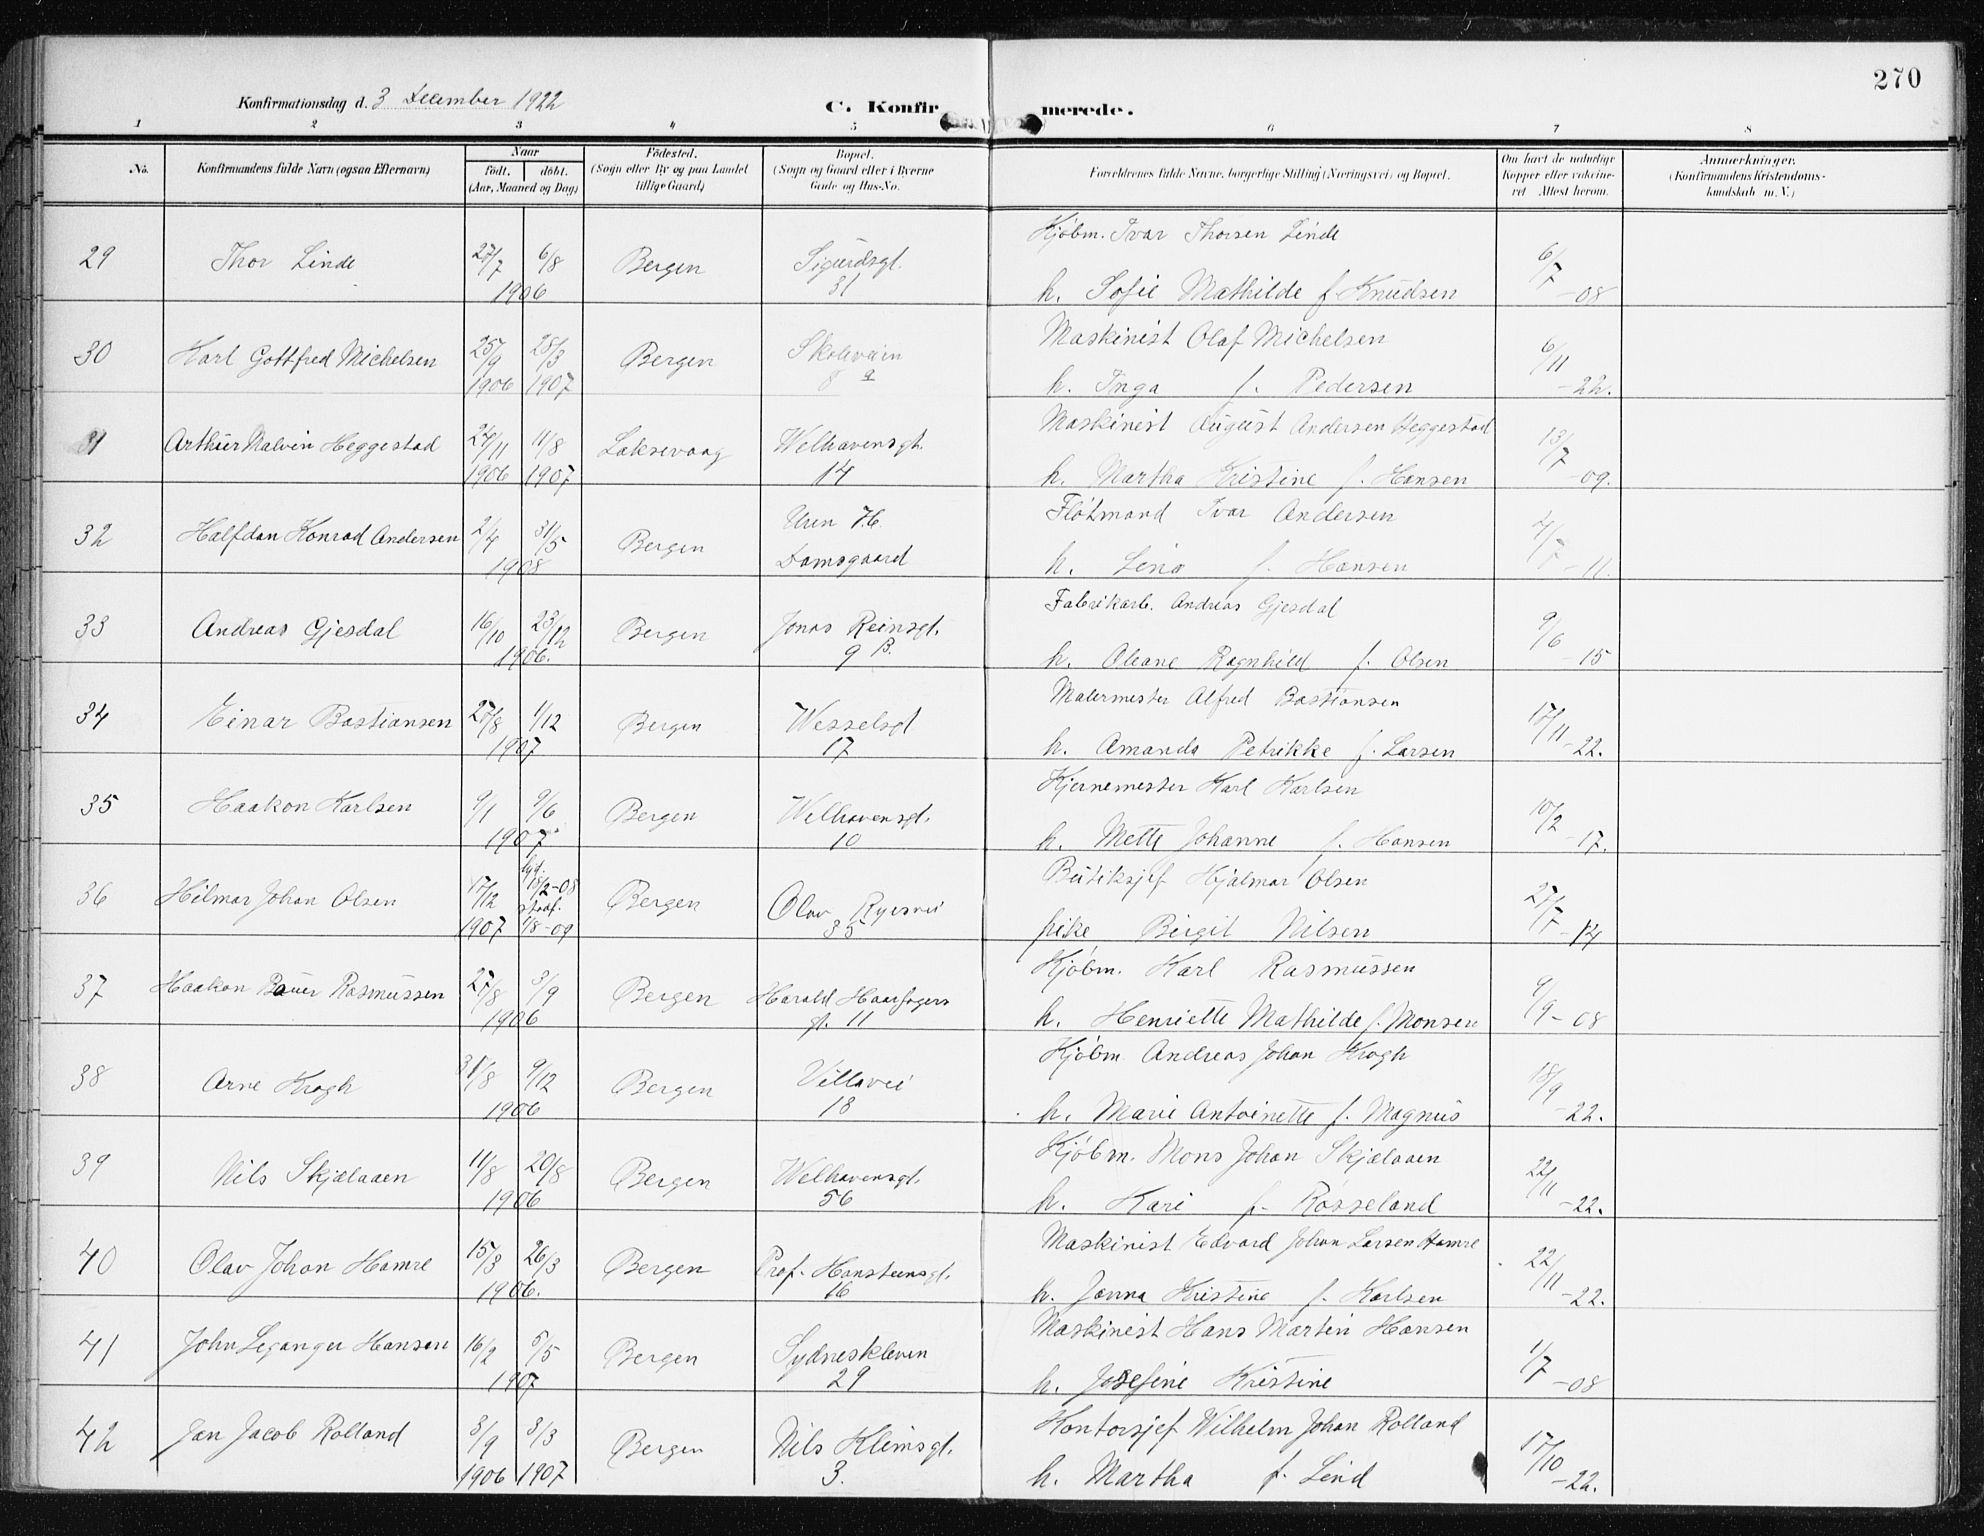 270
Konfirmationsdag d. 3 December 1922
C. Konfirmerede.
1 2 3 4 5 6 7 8
No. Konfirmandens fulde Navn (ogsaa Efternavn) Naar født. døbt. (Aar, Maaned og Dag) Fødested. (Sogn eller By og paa Landet tillige Gaard) Bopæl. (Sogn og Gaard eller i Byerne Gade og Hus-No. Forældrenes fulde Navne, borgerlige Stilling (Næringsvei) og Bopæl. Om havt de naturlige Kopper eller vaccineret. Attest herom. Anmærkninger. (Konfirmandens Kristendomskundskab m. V.)
29 Thor Linde 27/7 6/8 1906 Bergen Sigurdsgt. 31 Kjøbm. Ivar Thorsen Linde
h. Sofie Mathilde f. Knudsen 6/7 -08
30 Karl Gottfred Michelsen 25/9 1906 28/3 1907 Bergen Skoleveien 8 a Maskinist Olaf Michelsen
h. Inga f. Pedersen 6/11 -22.
31 Arthur Malvin Heggestad 24/11 1906 11/8 1907 Laksevaag Welhavensgt. 14 Maskinist August Andersen Heggestad
h. Martha Kristine f. Hansen 13/7 -09.
32 Halfdan Konrad Andersen 2/4 31/5 1908 Bergen Uren 76. Damsgaard Fløtmand Ivar Andersen
h. Lina f. Hansen 4/7 -11.
33 Andreas Gjesdal 16/10 23/12 1906. Bergen Jonas Reinsgt. 9 B. Fabrikarb. Andreas Gjesdal
h. Oleane Ragnhild f. Olsen 9/6 -15
34 Einar Bastiansen 27/8 1/12 1907 Bergen Wesselsgt. 17 Malermester Alfred Bastiansen
h. Amanda Petrikke f. Larsen 17/11 -22.
35 Haakon Karlsen 9/1 9/6 1907 Bergen Welhavensgt. 10 Kjernemester Karl Karlsen
h. Mette Johanne f. Hansen 10/2 -17.
36 Hilmar Johan Olsen 17/12 1907 18/2-08 1/8-09 Bergen Olav Ryesvei 35 Butiksjef Hjalmar Olsen
pike Birgit Nilsen 27/7 -14
37 Haakon Bauer Rasmussen 27/8 3/9 1906 Bergen Harald Haarfagers gt. 11 Kjøbm. Karl Rasmussen
h. Henriette Mathilde f. Monsen 9/9 -08
38 Arne Krogh 31/8 9/12 1906 Bergen Villavei 18 Kjøbm. Andreas Johan Krogh
h. Marie Antoinette f. Magnus 18/9 -22.
39 Nils Skjælaaen 11/8 20/8 1906 Bergen Welhavensgt. 56 Kjøbm. Mons Johan Skjælaaen
h. Kari f. Røsseland 22/11 -22.
40 Olav Johan Hamre 15/3 26/3 1906. Bergen Prof. Hansteensgt. 16 Maskinist Edvard Johan Larsen Hamre
h. Janna Kristine f. Karlsen 22/11 -22.
41 John Leganger Hansen 16/2 5/5 1907 Bergen Sydneskleven 29 Maskinist Hans Martin Hansen
h. Josefine Kristine 1/7 -08
42 Jan Jacob Rolland 3/9 1906 3/3 1907 Bergen Nils Klimsgt. 3. Kontorsjef Wilhelm Johan Rolland
h. Martha f. Lind 17/10 -22.